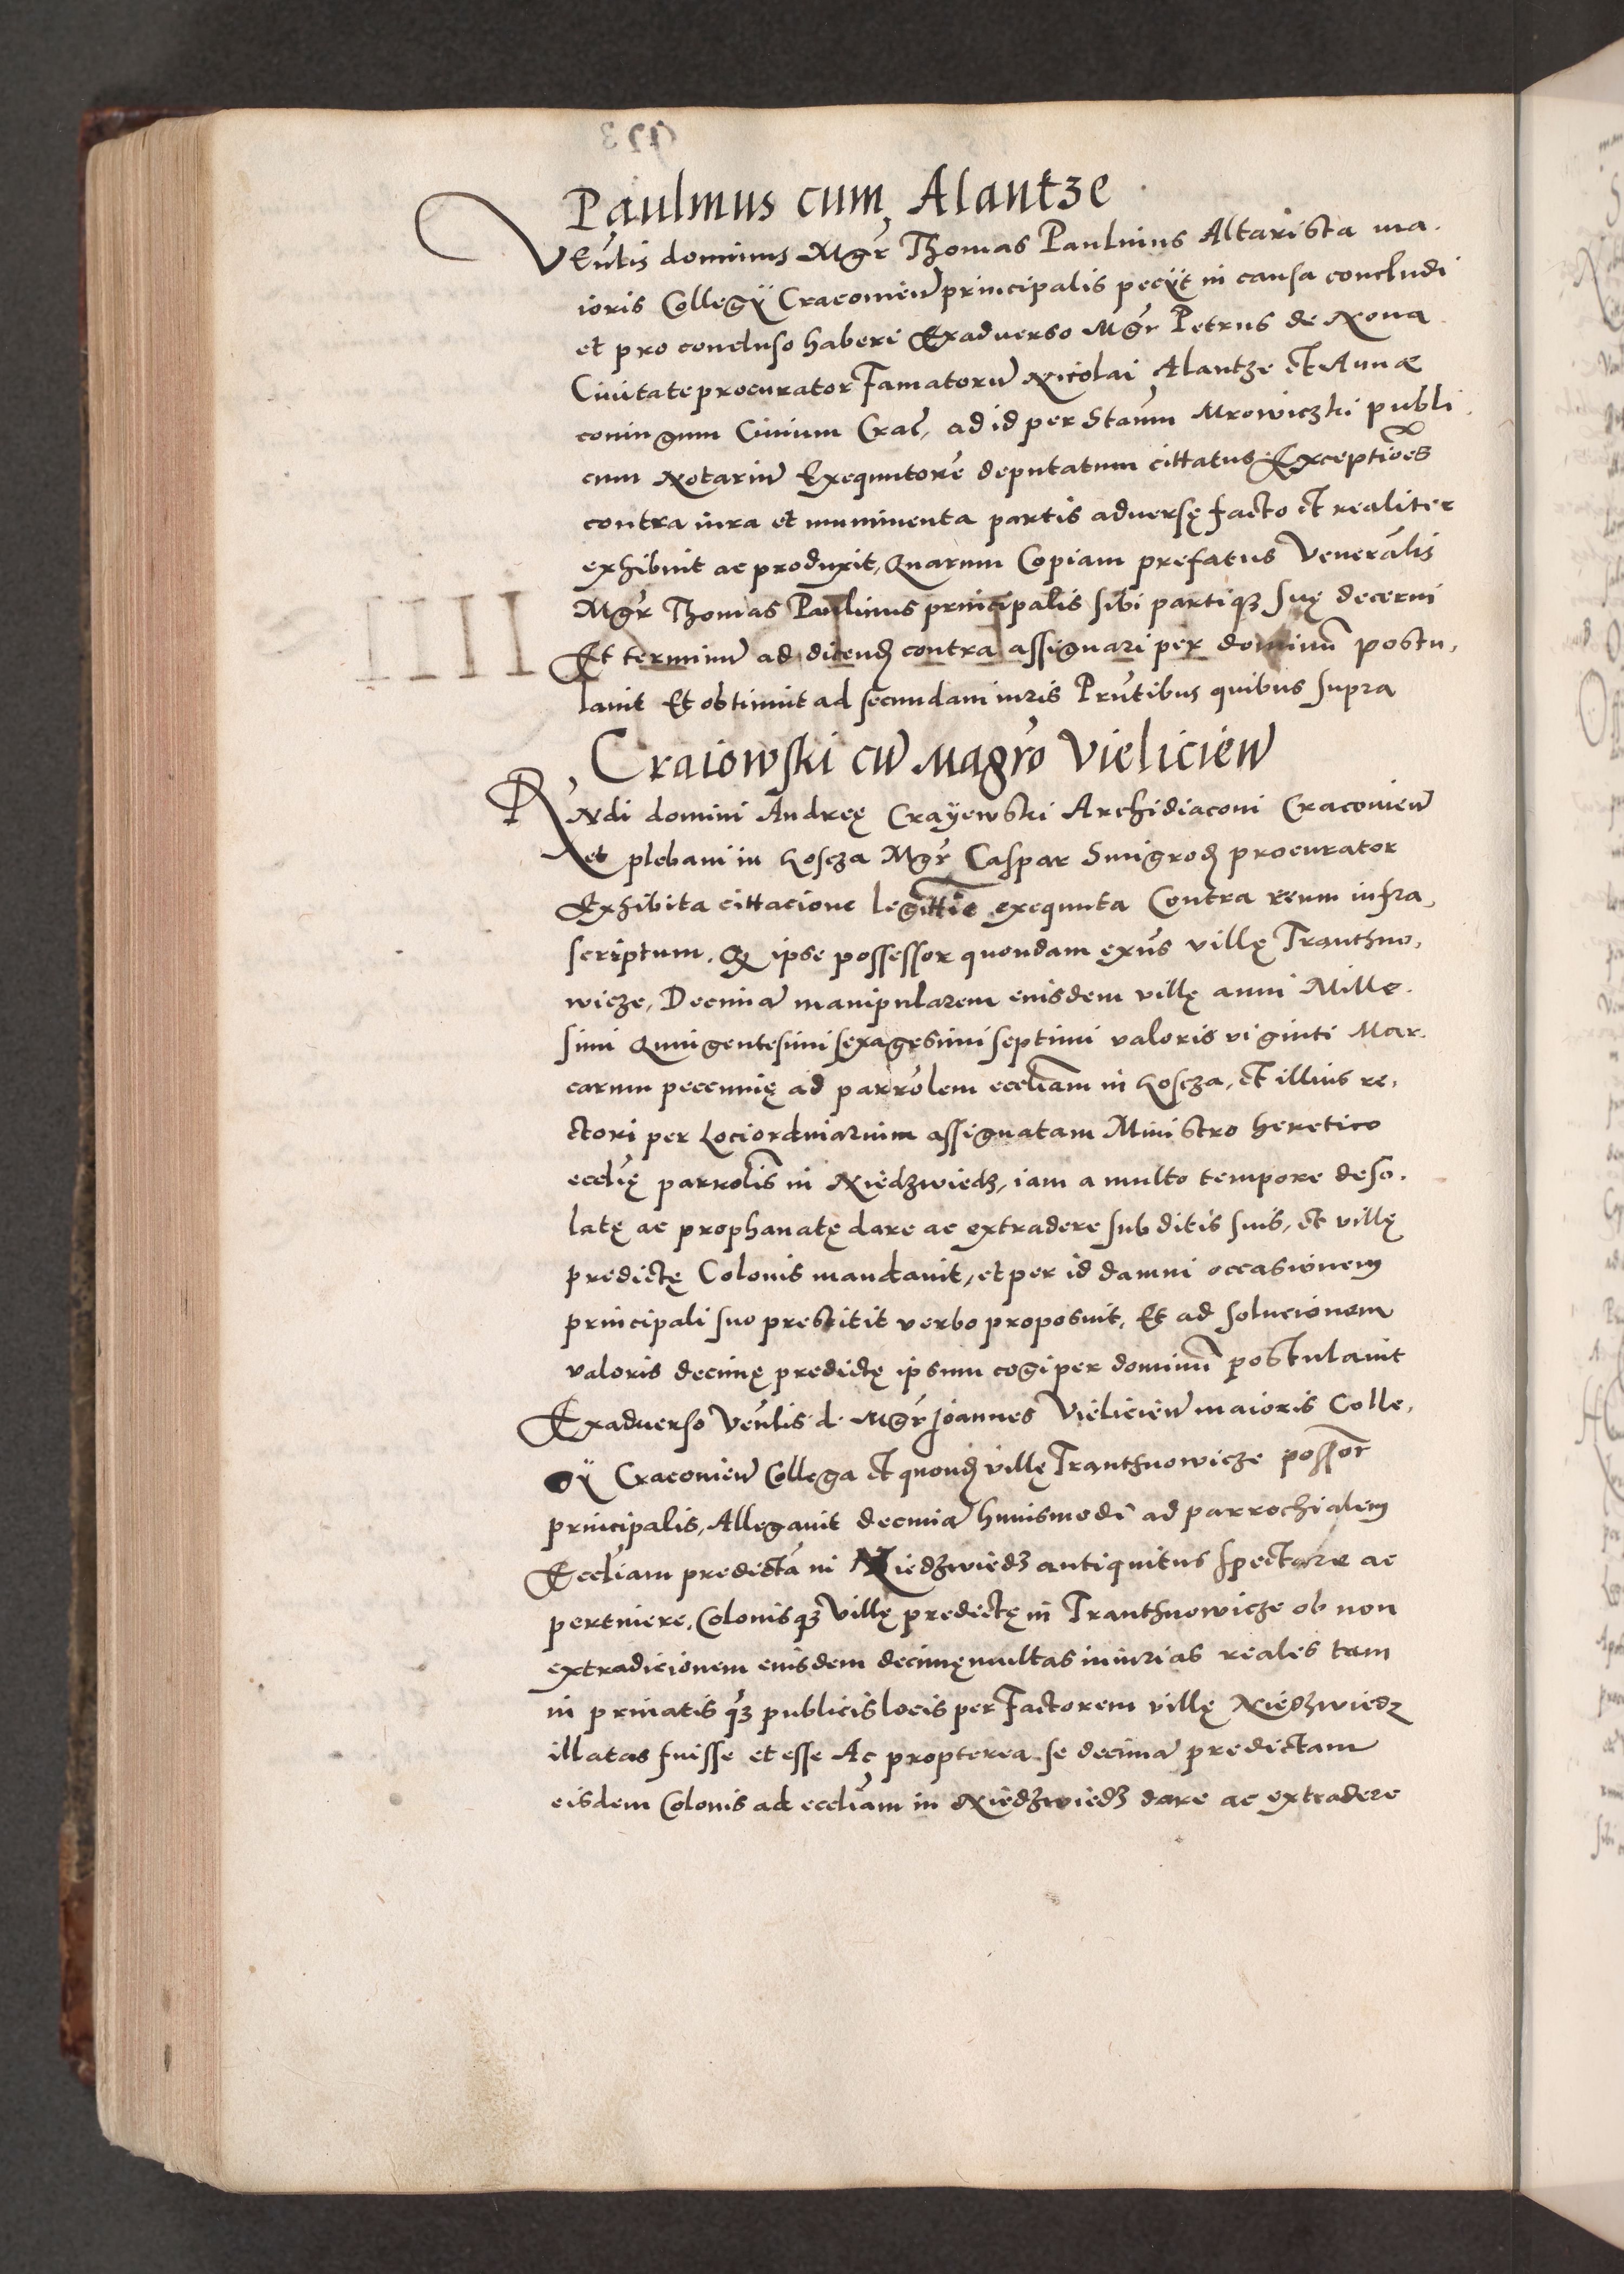 Paulinus cum Alantze
VEnlis dominus Mgr Thomas Paulinus Altarista ma
ioris Collegÿ Cracouien principalis pecÿt in causa concludi
et pro concluso haberi Exaduerso Mgr Petrus de Noua
Ciuitate procurator famatorum Nicolai Alantze et Annæ
coniugum Ciuium Crac, ad id per Staum Mrowiczki publi
cum Notarium Exequutorē deputatum cittatus Exceptioēs
contra iura et munimenta partis aduersę facto et realiter
exhibuit ac produxit, Quarum Copiam prefatus Veneralis
Mgr Thomas Paulinus principalis sibi partiqꝫ suę decerni
Et terminum ad dicend contra assignari per dominū postu,
lauit Et obtinuit ad secundam iuris Prntibus quibus supra
Craiowski cum Magro Vielicien
RNdi domini Andreę Crayewski Archidiaconi Cracouien
et plebani in Koscza Mgr Caspar Smigrod procurator
Exhibita cittacione legittie exequuta Contra reum infra,
scriptum. Q ipse possessor quondam exns villę Tranthno,
wicze, Decimam manipularem eiusdem villę anni Mille
simi Quingentesimi sexagesimi septimi valoris viginti Mar
carum peccunię ad parrolem eccliam in Koscza, et illius re,
ctori per Lociordniarium assignatam Ministro heretico
ecclię parrolis in Niedzwiedz, iam a multo tempore deso.
latę ac prophanatę dare ac extradere subditis suis, et villę
predictę Colonis mandauit, et per id damni occasionem
principali suo prestitit verbo proposuit, Et ad solucionem
valoris decimę predictę ipsum cogi per dominū postulauit
Exaduerso Venlis d. Mgr Joannes Vielicien maioris Colle,
gÿ Cracouien Collega et quond villę Tranthnowicze possor
principalis, Allegauit decimam huiusmodi ad parrochialem
Eccliam predictā in Niedzwiedz antiquitus spectare ac
pertinere, Colonisqꝫ villę predictę in Tranthnowicze ob non
extradicionem eiusdem decimę multas iniurias reales tam
in priuatis qꝫ publicis locis per factorem villę Niedzwiedz
illatas fuisse et esse Ac propterea se decimam predictam
eisdem Colonis ad eccliam in Niedzwiedz dare ac extradere